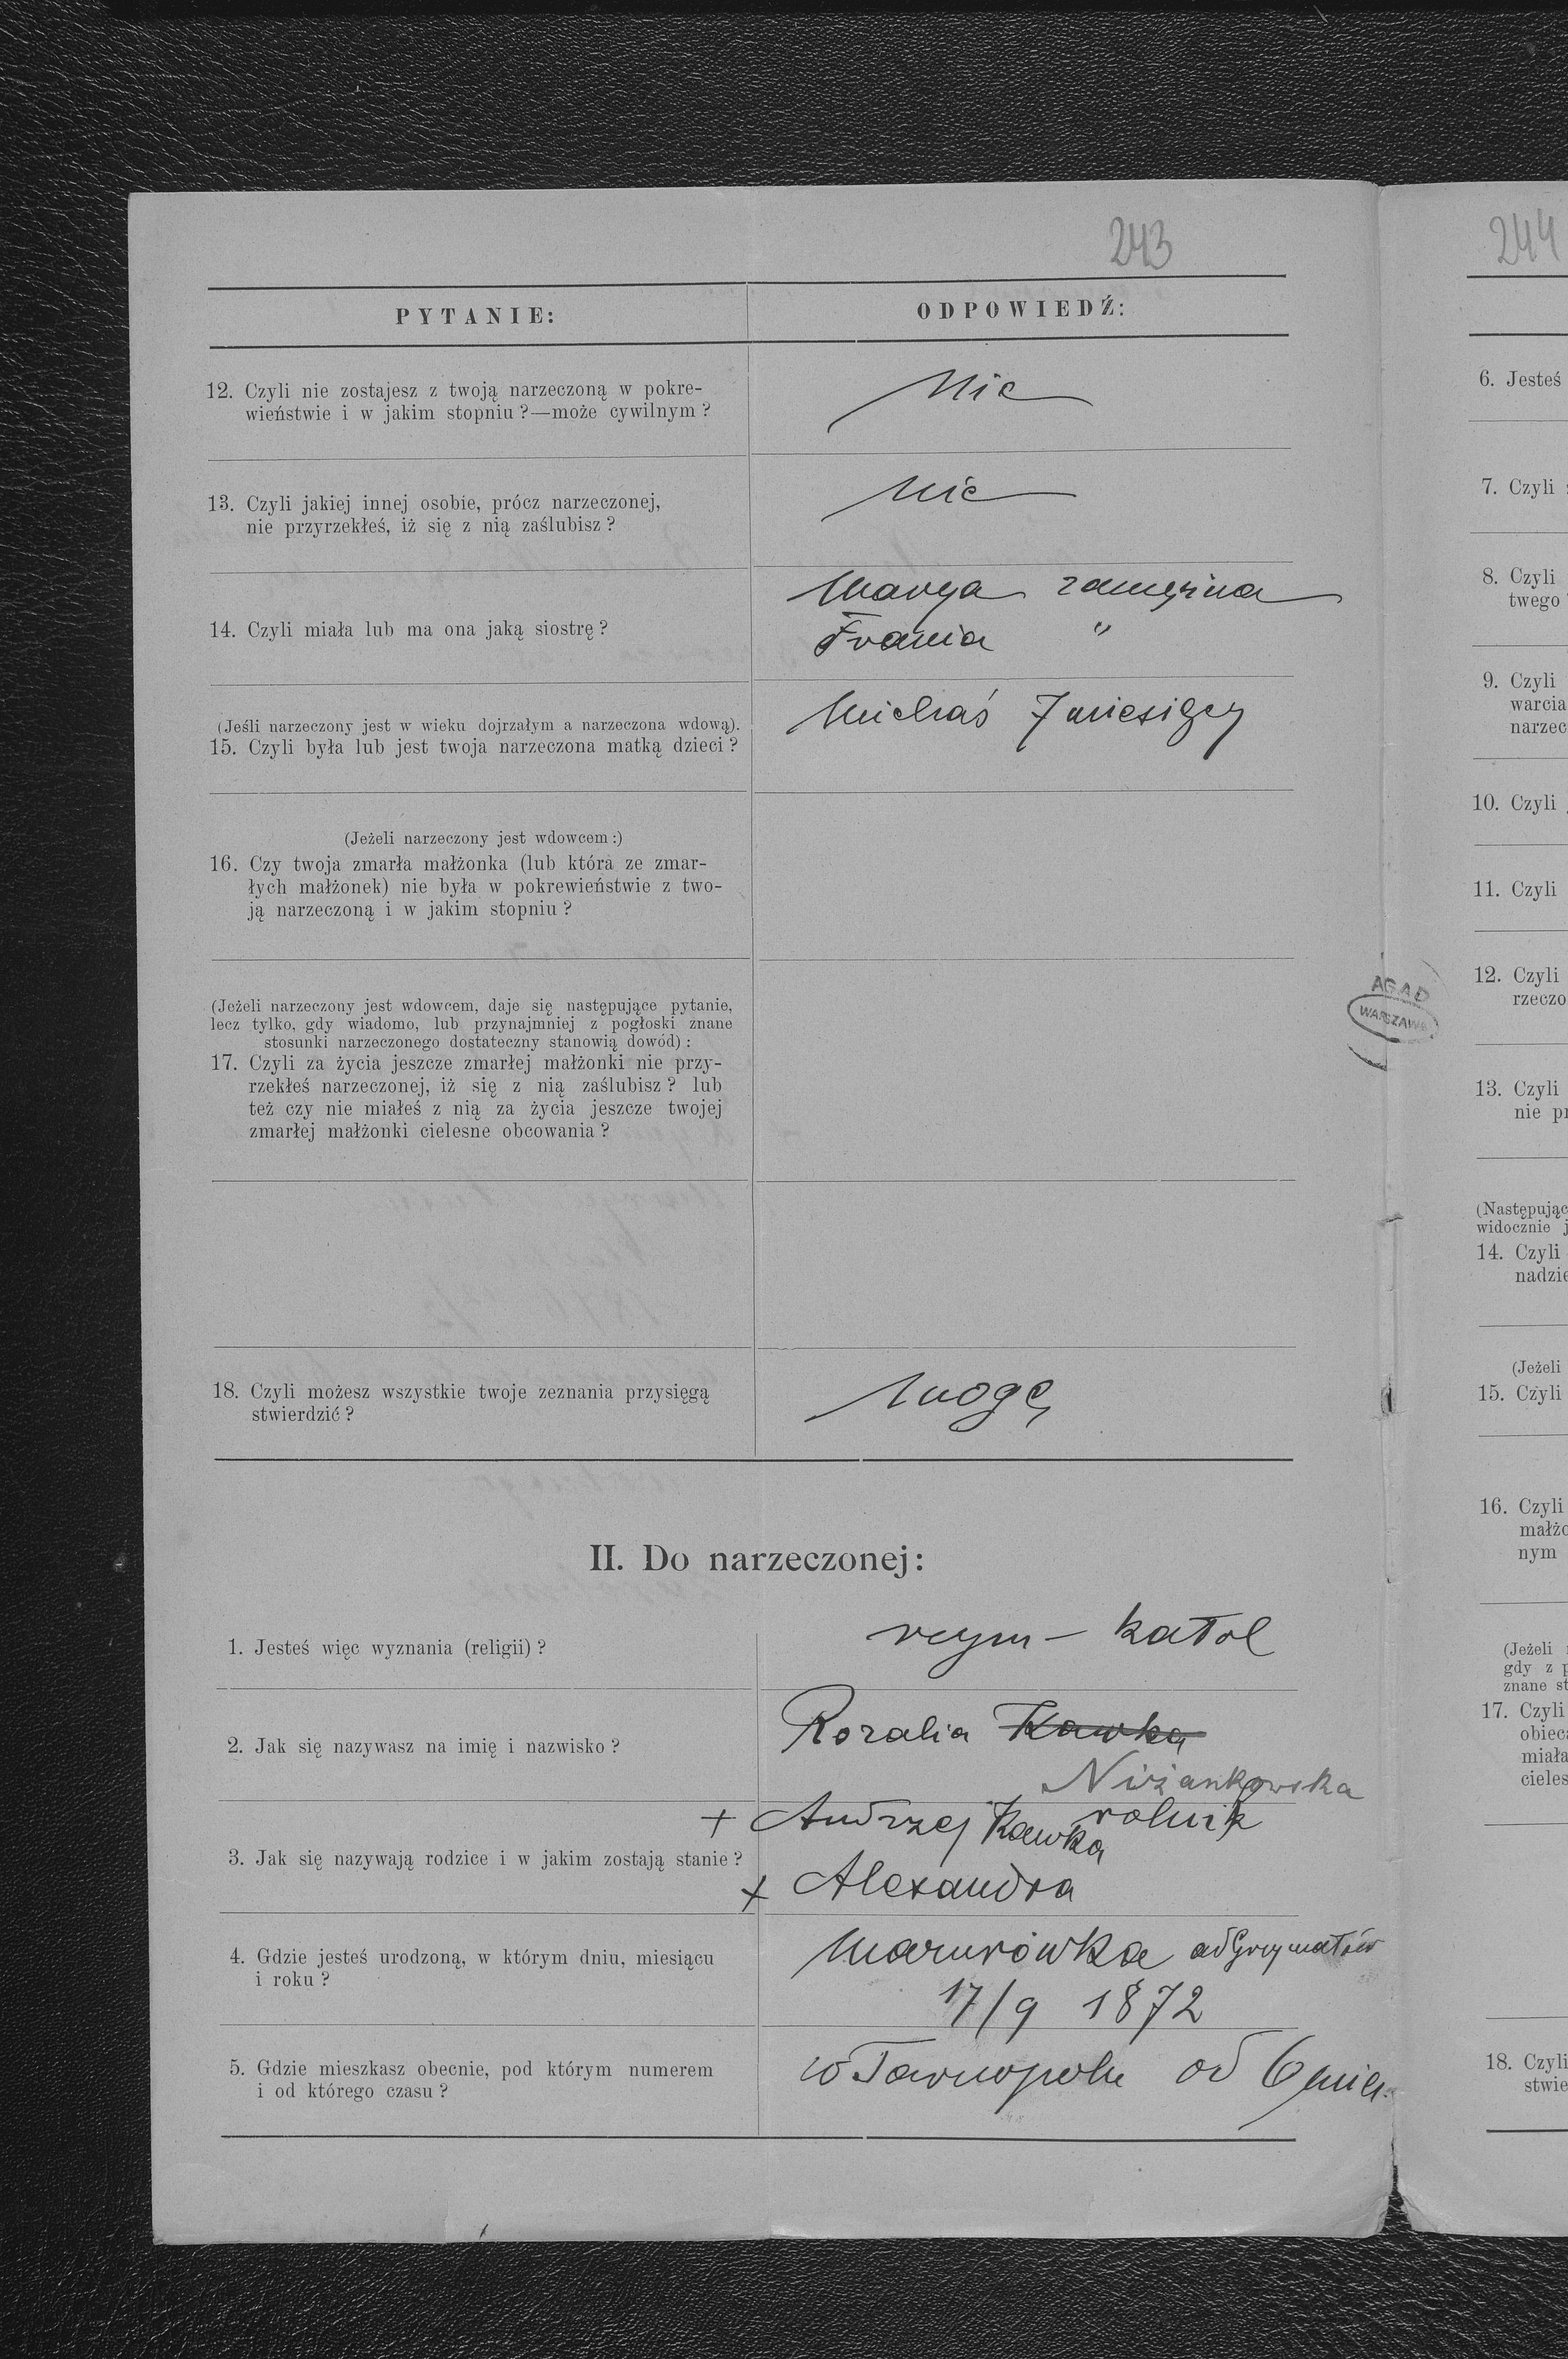 243
244
PYTANIE:
ODPOWIEDŹ:
12. Czyli nie zostajesz z twoją narzeczoną w pokre-
wieństwie i w jakim stopniu?—może cywilnym?
Nie
13. Czyli jakiej innej osobie, prócz narzeczonej,
nie przyrzekłeś, iż się z nią zaślubisz?
Nie
14. Czyli miała lub ma ona jaką siostrę?
Marya zamężna
Frania "
(Jeśli narzeczony jest w wieku dojrzałym a narzeczona wdową).
15. Czyli była lub jest twoja narzeczona matką dzieci?
Michaś 7 miesięcy
(Jeżeli narzeczony jest wdowcem:)
16. Czy twoja zmarła małżonka (lub która ze zmar-
łych małżonek) nie była w pokrewieństwie z two-
ją narzeczoną i w jakim stopniu?
(Jeżeli narzeczony jest wdowcem, daje się następujące pytanie,
lecz tylko, gdy wiadomo, lub przynajmniej z pogłoski znane
stosunki narzeczonego dostateczny stanowią dowód):
17. Czyli za życia jeszcze zmarłej małżonki nie przy-
rzekłeś narzeczonej, iż się z nią zaślubisz? lub
też czy nie miałeś z nią za życia jeszcze twojej
zmarłej małżonki cielesne obcowania?
18. Czyli możesz wszystkie twoje zeznania przysięgą
stwierdzić?
Mogę
II. Do narzeczonej:
1. Jesteś więc wyznania (religii)?
rzym - katol
2. Jak się nazywasz na imię i nazwisko?
Rozalia Kawka
Niżankowska
3. Jak się nazywają rodzice i w jakim zostają stanie?
+ Andrzej Kawka rolnik
+ Alexandra
4. Gdzie jesteś urodzoną, w którym dniu, miesiącu
i roku?
Mazurówka ad Grzymałów
17/9 1872
5. Gdzie mieszkasz obecnie, pod którym numerem
i od którego czasu?
w Tarnopolu od 6 mies.
AGAD
WARSZAWA
6. Jesteś
7. Czyli
8. Czyli
twego
9. Czyli
warcia
narzec
10. Czyli
11. Czyli
12. Czyli
rzeczo
13. Czyli
nie pr
(Następując
widocznie j
14. Czyli
nadzie
(Jeżeli
15. Czyli
16. Czyli
małżo
nym
(Jeżeli
gdy z p
znane st
17. Czyli
obieca
miała
cieles
18. Czyli
stwie